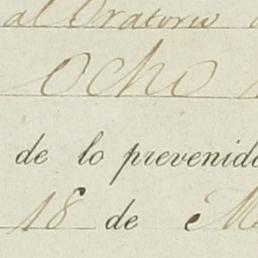 al Oratorio
Ocho
de lo prevenido
18 de